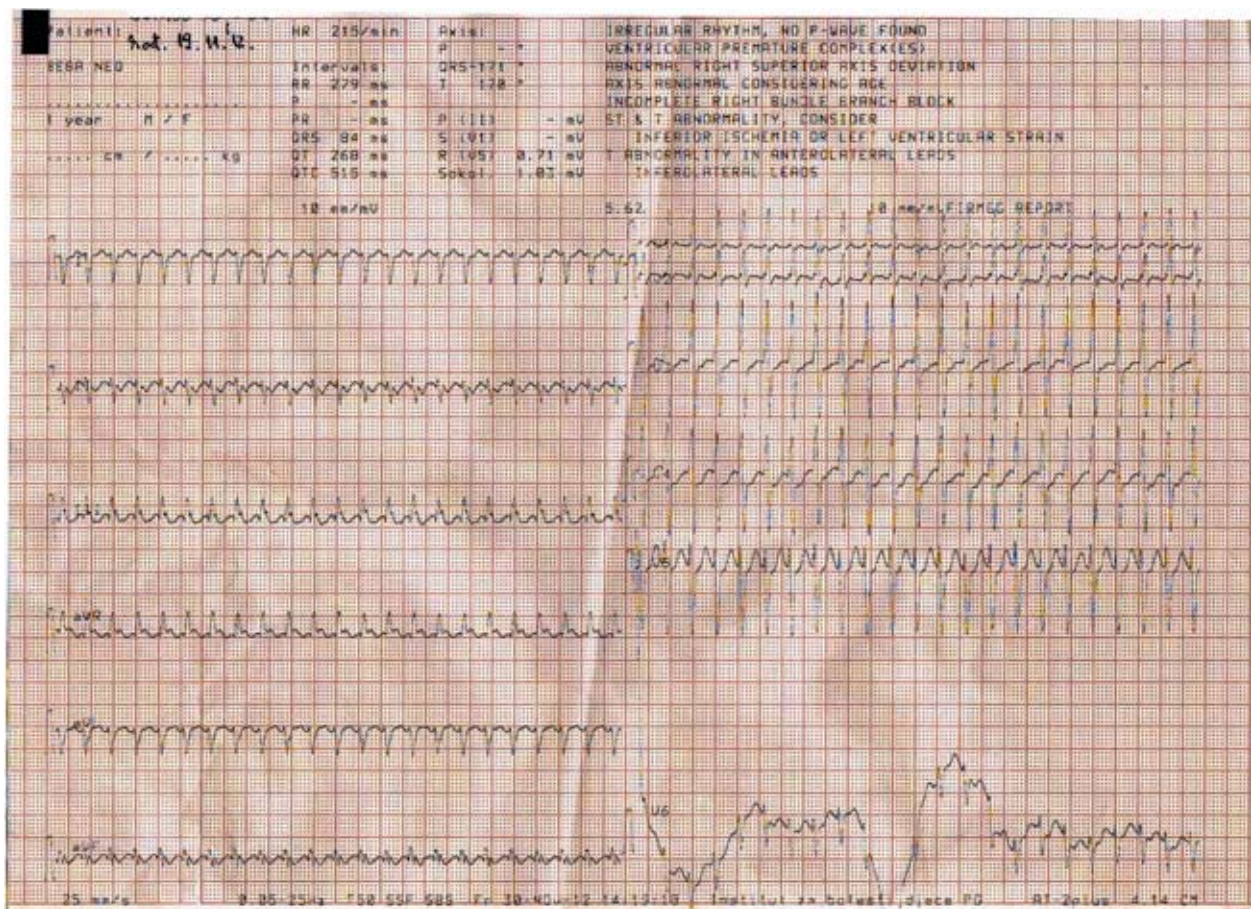 Patient:
nat. 19. 11. 12.
BEBA NEO
1 year M / F
..... cm / ..... kg
HR 215/min
Intervals:
RR 279 ms
P - ms
PR - ms
QRS 84 ms
QT 268 ms
QTC 515 ms
Axis:
P - °
QRS-171 °
T 178 °
P (II) - mV
S (V1) - mV
R (V5) 0.71 mV
Sokol. 1.03 mV
IRREGULAR RHYTHM, NO P-WAVE FOUND
VENTRICULAR PREMATURE COMPLEX(ES)
ABNORMAL RIGHT SUPERIOR AXIS DEVIATION
AXIS ABNORMAL CONSIDERING AGE
INCOMPLETE RIGHT BUNDLE BRANCH BLOCK
ST & T ABNORMALITY, CONSIDER
INFERIOR ISCHEMIA OR LEFT VENTRICULAR STRAIN
T ABNORMALITY IN ANTEROLATERAL LEADS
INFEROLATERAL LEADS
10 mm/mV
5.62
10 mm/mV REPORT
aVR
V6
25 mm/s
0.05-25Hz F50 SSF SBS
Institut za bolesti djece PG
AT-2plus 4.14 CM